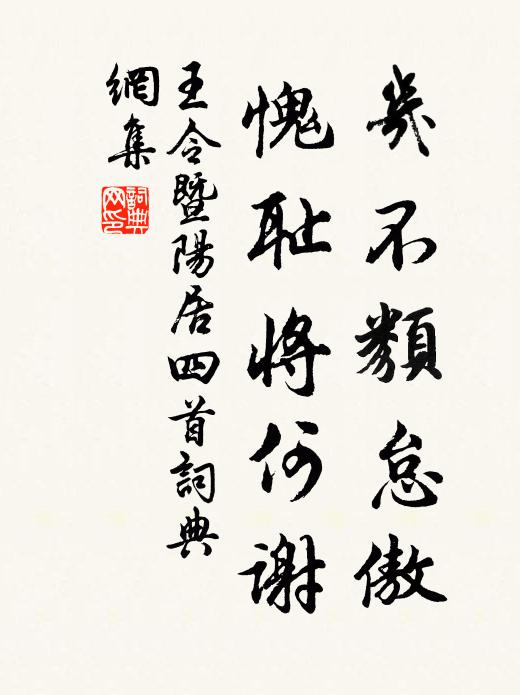 幾不類怠傲
愧耻將何謝
王令暨陽居四首詞典
網集
詞典網印